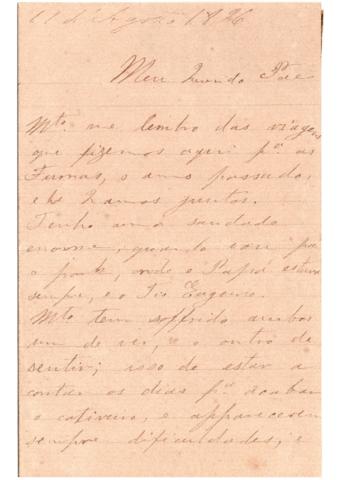 11 d'Agosto 1896
Meu Querido Pae
Mto. me lembro das viagens
que fizemos aqui pa. as
Furnas, o anno passado,
e ha 2 annos juntos.
Tenho uma saudade
enorme, quando vou pa.
o , onde o Papá estava
sempre, e o Tio Eugenio.
Mto tem soffrido ambos
um de ver, e o outro de
sentir; isso de estar a
contar os dias pa. acabar
o cativeiro, e apparecerem
sempre dificuldades, e